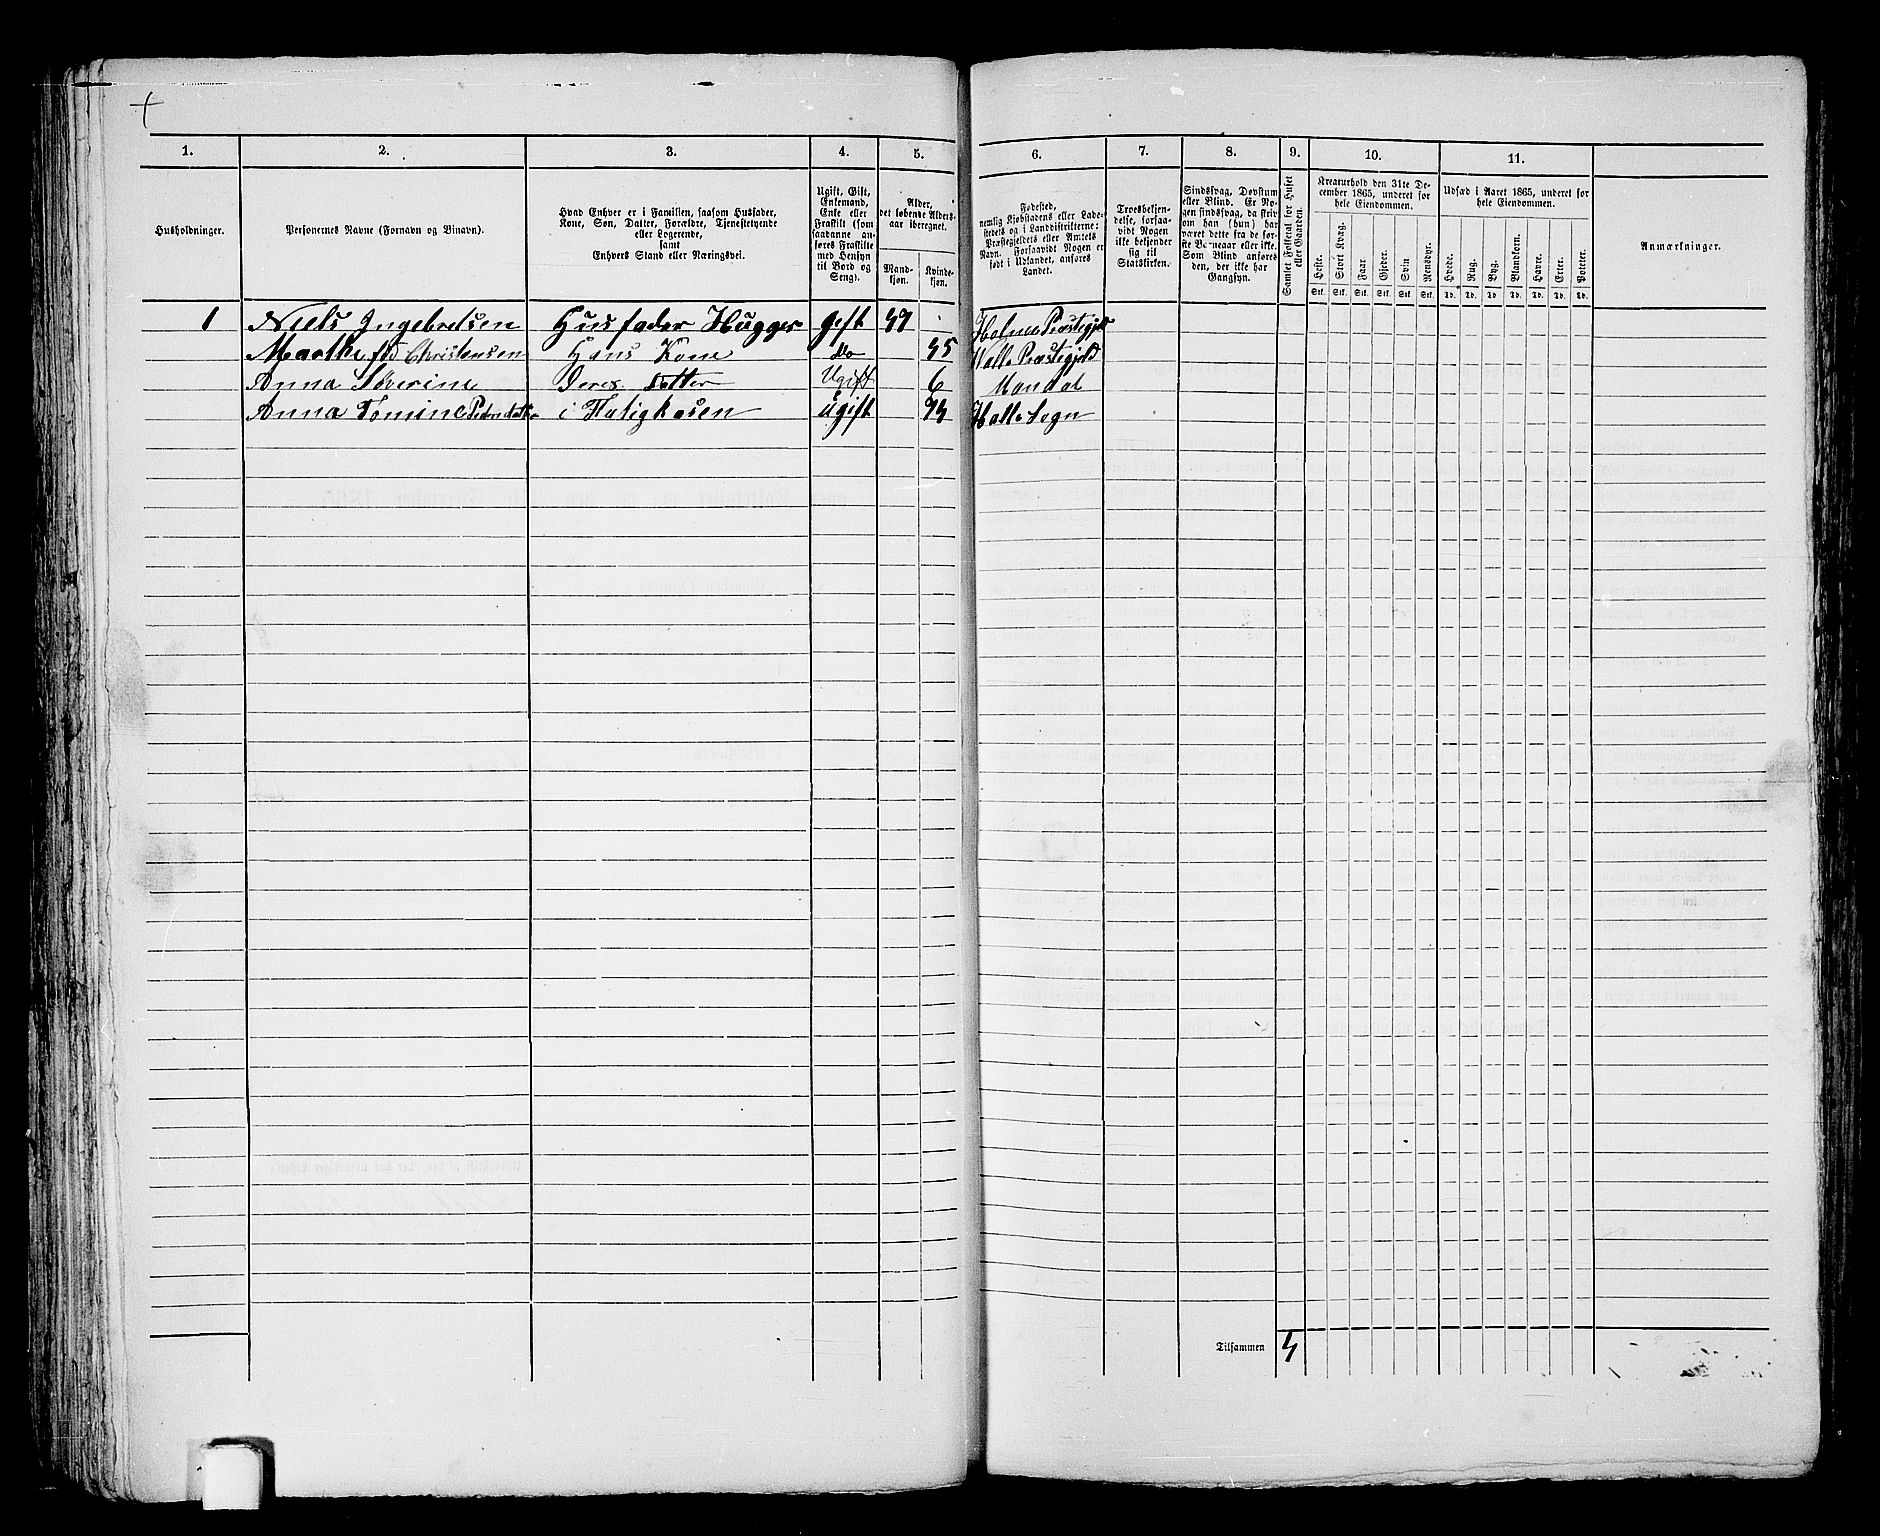 1.
2.
3.
4.
5.
6.
7.
8.
9.
10.
11.
Husholdninger.
Personernes Navne (Fornavn og Binavn).
Hvad Enhver er i Familien, saasom Husfader,
Kone, Søn, Datter, Forældre, Tjenestetyende
eller Logerende,
samt
Enhvers Stand eller Næringsvei.
Ugift, Gift,
Enkemand,
Enke eller
Fraskilt (som
saadanne an-
føres Fraskilte
med Hensyn
til Bord og
Seng).
Alder,
det løbende Alders-
aar iberegnet.
Mand-
kjøn.
Kvinde-
kjøn.
Fødested,
nemlig Kjøbstadens eller Lade-
stedets og i Landdistrikterne:
Præstegjeldets eller Amtets
Navn. Forsaavidt Nogen er
født i Udlandet, anføres
Landet.
Troesbekjen-
delse, forsaa-
vidt Nogen
ikke bekjender
sig til
Statskirken.
Sindssvag, Døvstum
eller Blind. Er No-
gen sindssvag, da skriv
om han (hun) har
været dette fra de før-
ste Barneaar eller ikke.
Som Blind anføres
den, der ikke har
Gangsyn.
Samlet Folketal for Huset
eller Gaarden.
Kreaturhold den 31te De-
cember 1865, underet for
hele Eiendommen.
Heste.
Stort Kvæg.
Faar.
Gjeder.
Svin
Rensdyr.
Stk. Stk. Stk. Stk. Stk. Stk.
Udsæd i Aaret 1865, underet for
hele Eiendommen.
Hvede.
Rug.
Byg.
Blandkorn.
Havre.
Erter.
Poteter.
Td. Td. Td. Td. Td. Td. Td.
Anmærkninger.
1 Niels Ingebretsen Husfader Hugger gift 49 Præstegjeld
Marthe fød Christensen Hans Kone do 45 Halse Præstegjeld
Anna Severine Deres Datter Ugift 6 Mandal
Anna Tomine Pedersdatter i Fatigkasen ugift Halse Sogn
Tilsammen 4